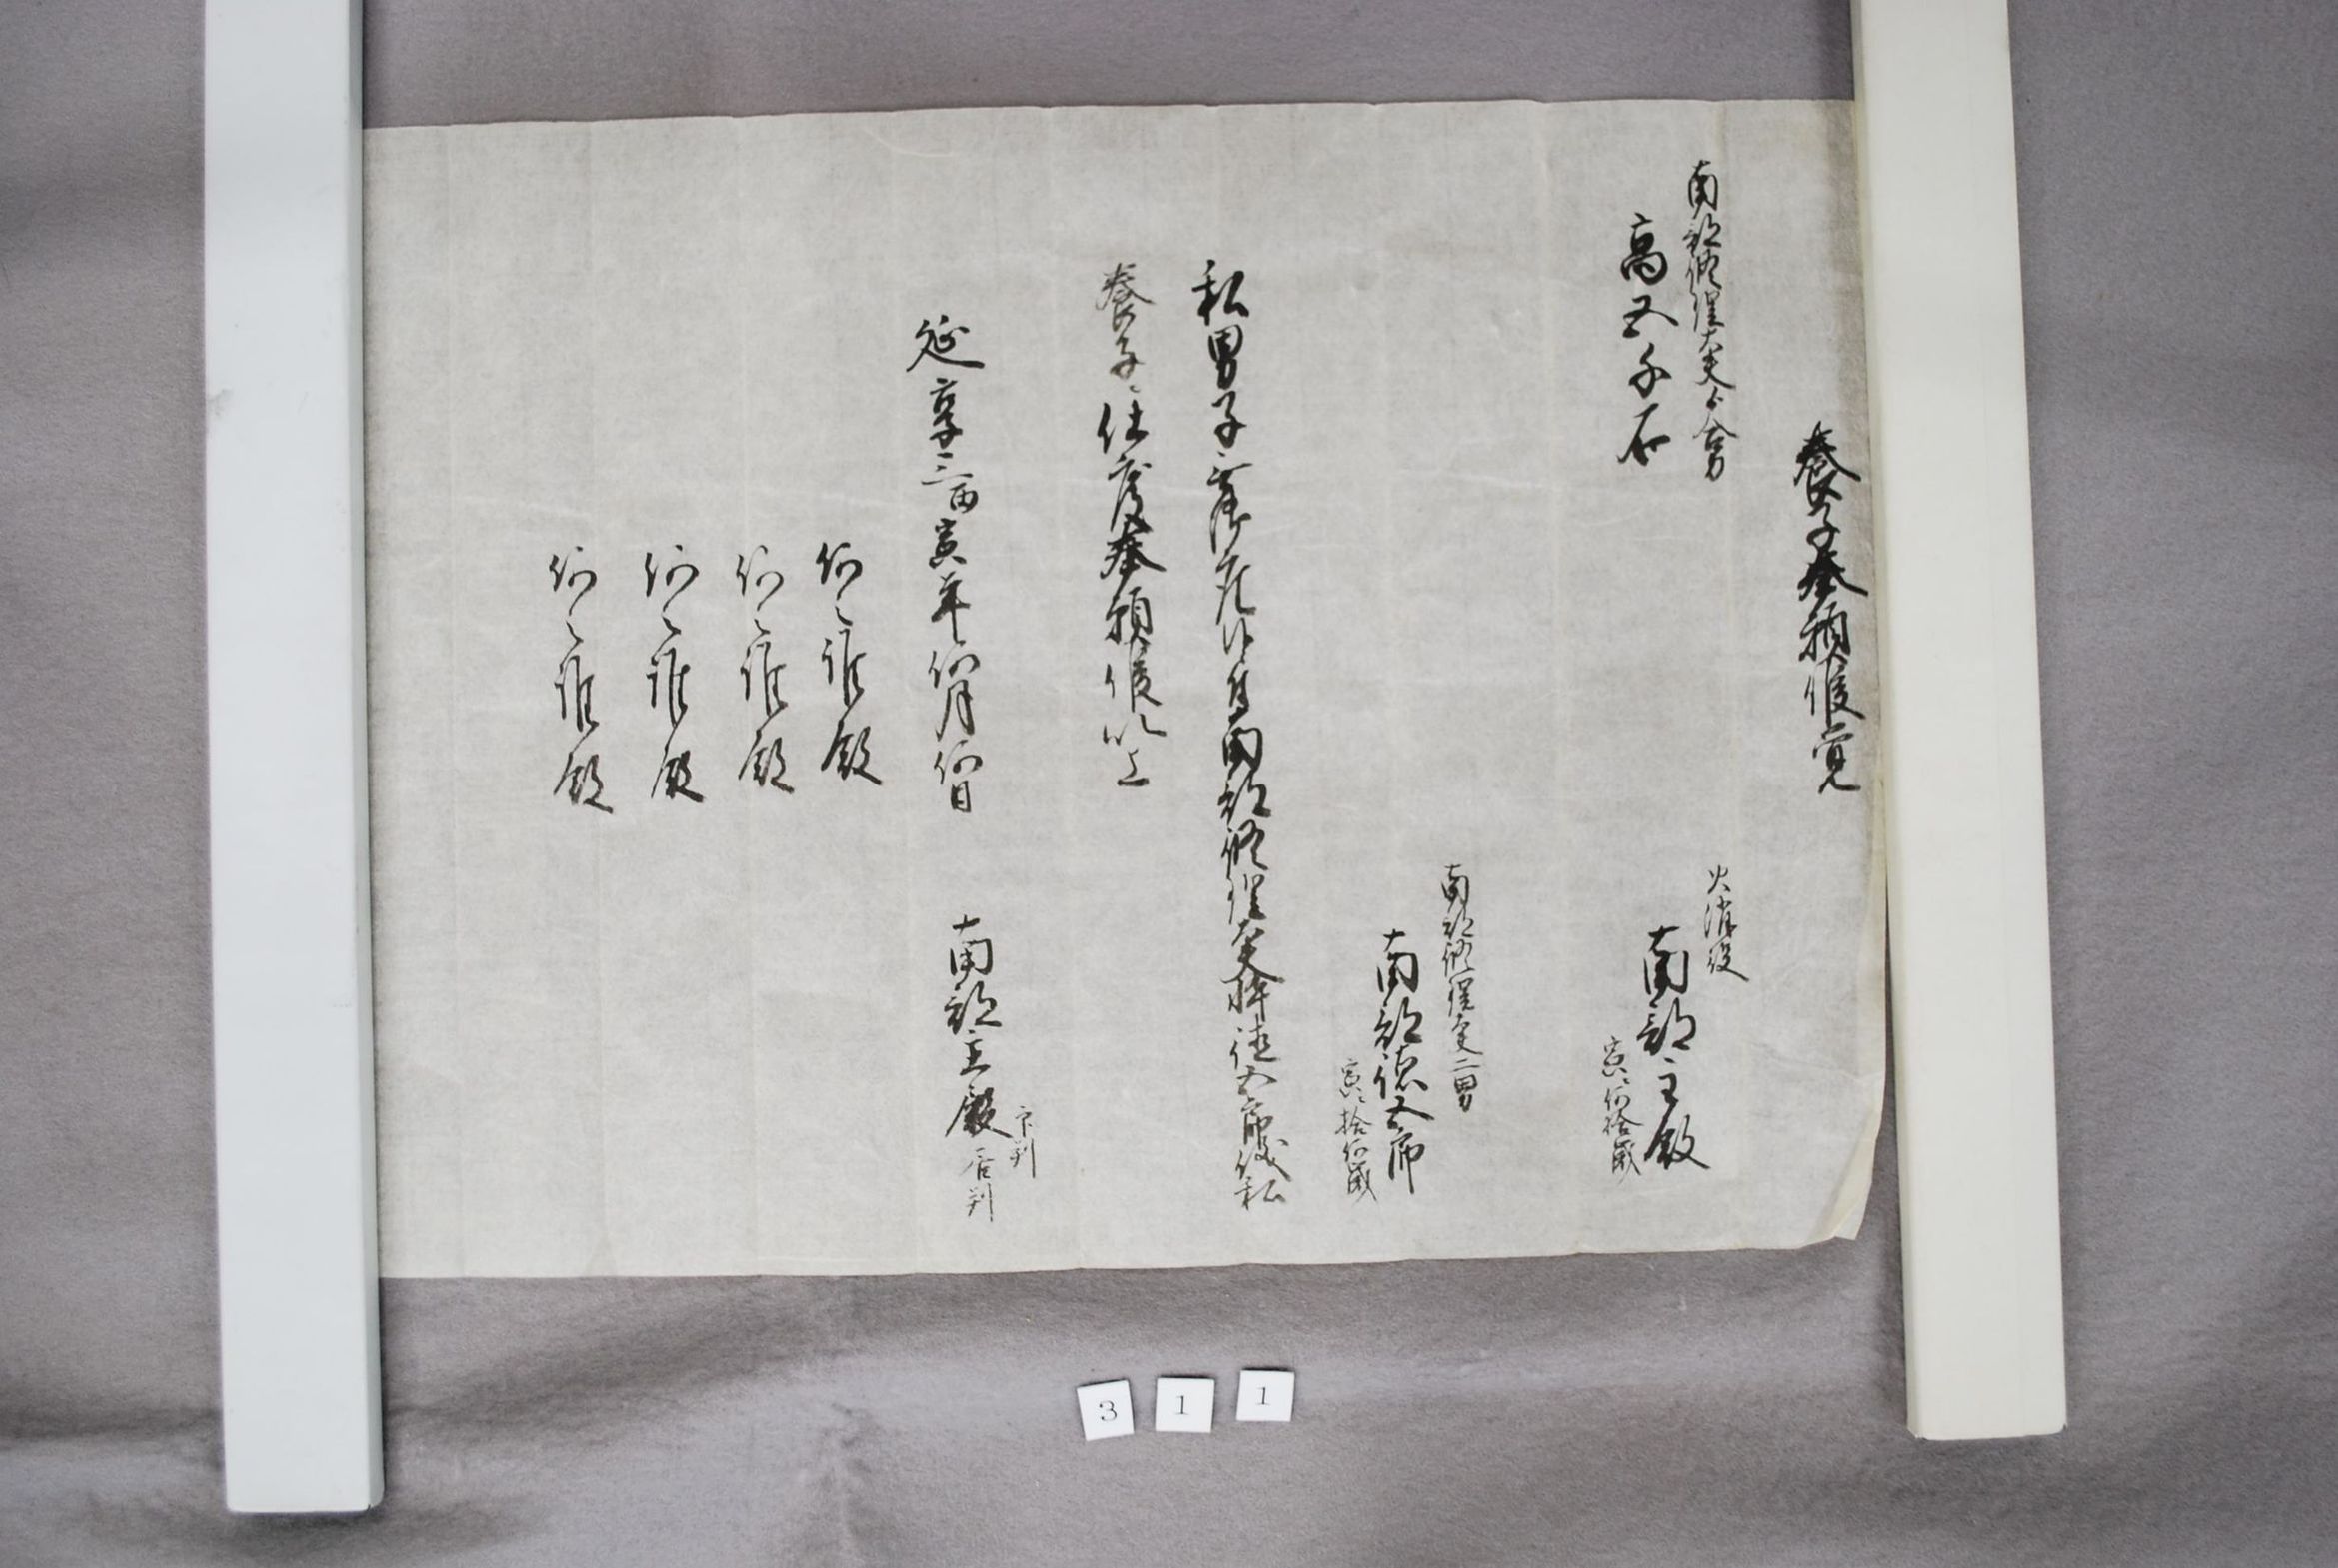 養子奉願候覚
南部修理大夫分家
高五千石
火消役
南部主殿
寅何拾歳
南部修理大夫二男
南部徳五郎
寅拾何歳
私男子無御座候付南部修理大夫倅徳五郎儀私
養子仕度奉願候以上
延享三丙寅年何月何日
南部主殿
居判
何之誰殿
何之誰殿
何之誰殿
何之誰殿
3 1 1